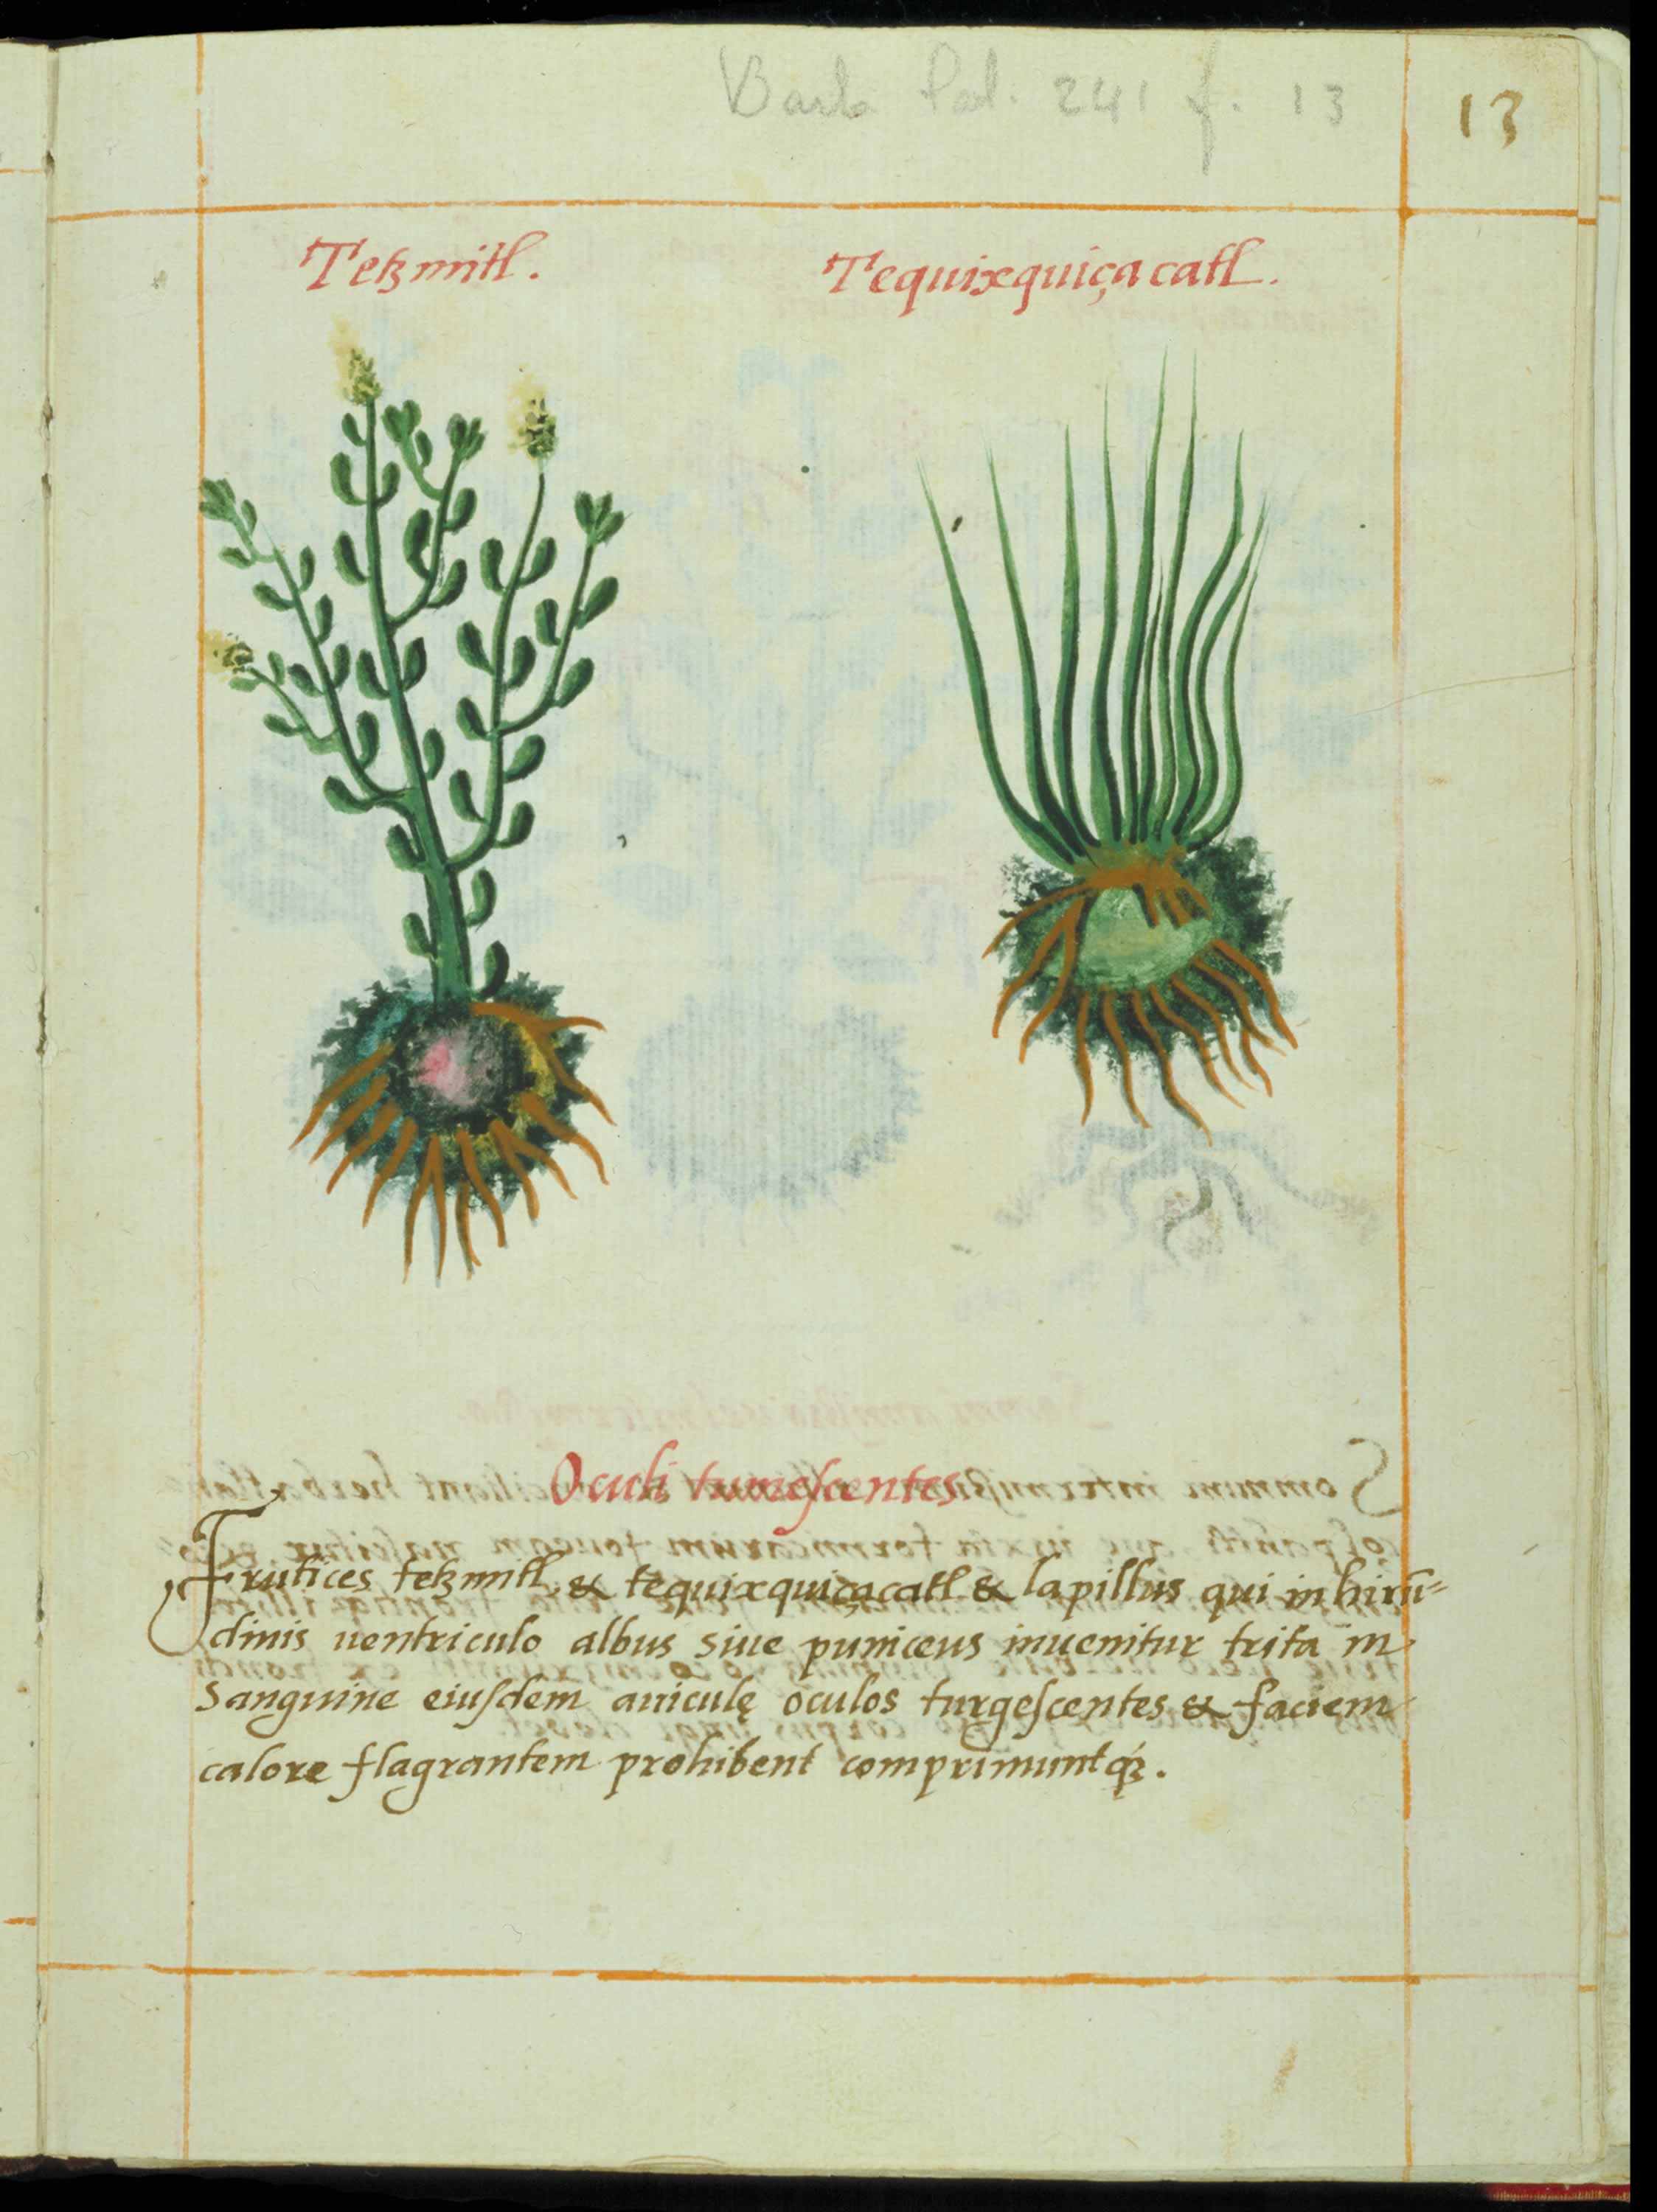 Barb. Lat. 241 f. 13
13
Tetzmitl.
Tequixquiçacatl.
Oculi tumescentes
Frutices tetzmitl, & tequixquiçacatl & lapillus qui in hirū=
dinis uentriculo albus siue puniceus inuenitur trita in
sanguine eiusdem auiculę oculos turgescentes & faciem
calore flagrantem prohibent comprimuntq́;.